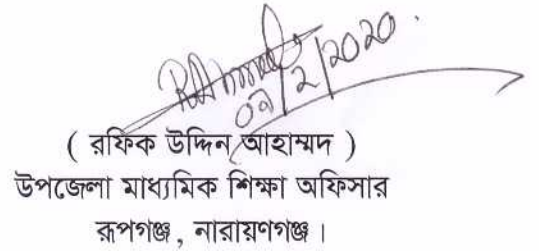 09/2/2020.
( রফিক উদ্দিন আহাম্মদ )
উপজেলা মাধ্যমিক শিক্ষা অফিসার
রূপগঞ্জ , নারায়ণগঞ্জ ।